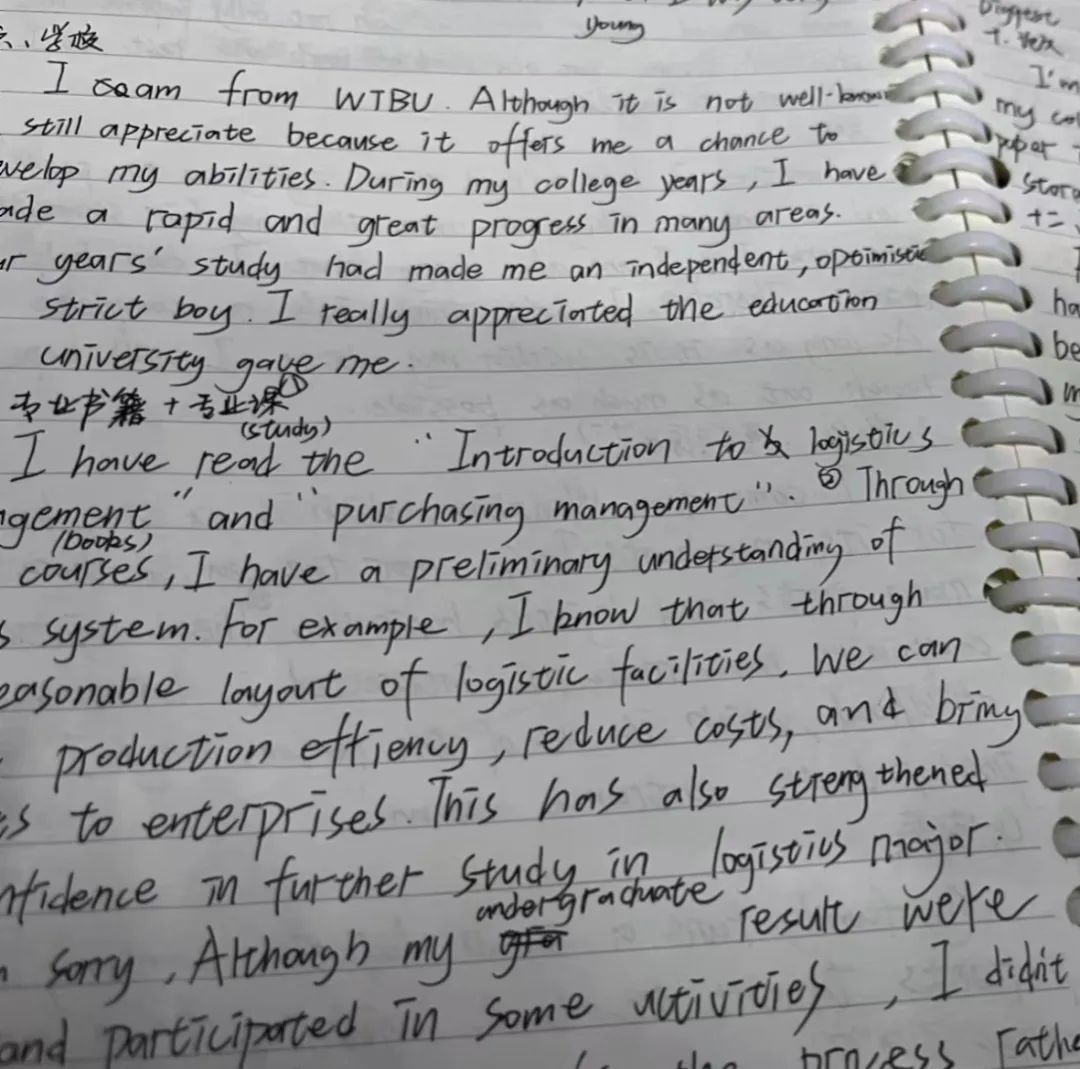 young
、学校
I am from WTBU. Although it is not well-known
still appreciate because it offers me a chance to
velop my abilities. During my college years, I have
ade a rapid and great progress in many areas.
r years' study had made me an independent, optimistic
strict boy. I really appreciated the education
university gave me.
专业书籍 + 专业课
(study) ①
I have read the "Introduction to logistics
gement" and "purchasing management". ② Through
(books)
courses, I have a preliminary understanding of
s system. For example, I know that through
easonable layout of logistic facilities. We can
production effiency, reduce costs, and bring
s to enterprises. This has also strengthened
nfidence in further study in logistics major.
undergraduate
sorry, Although my result were
and participated in some activities, I didn't
process rathe
Biggest
I'm
my col
paper
Stora
+=
ha
be